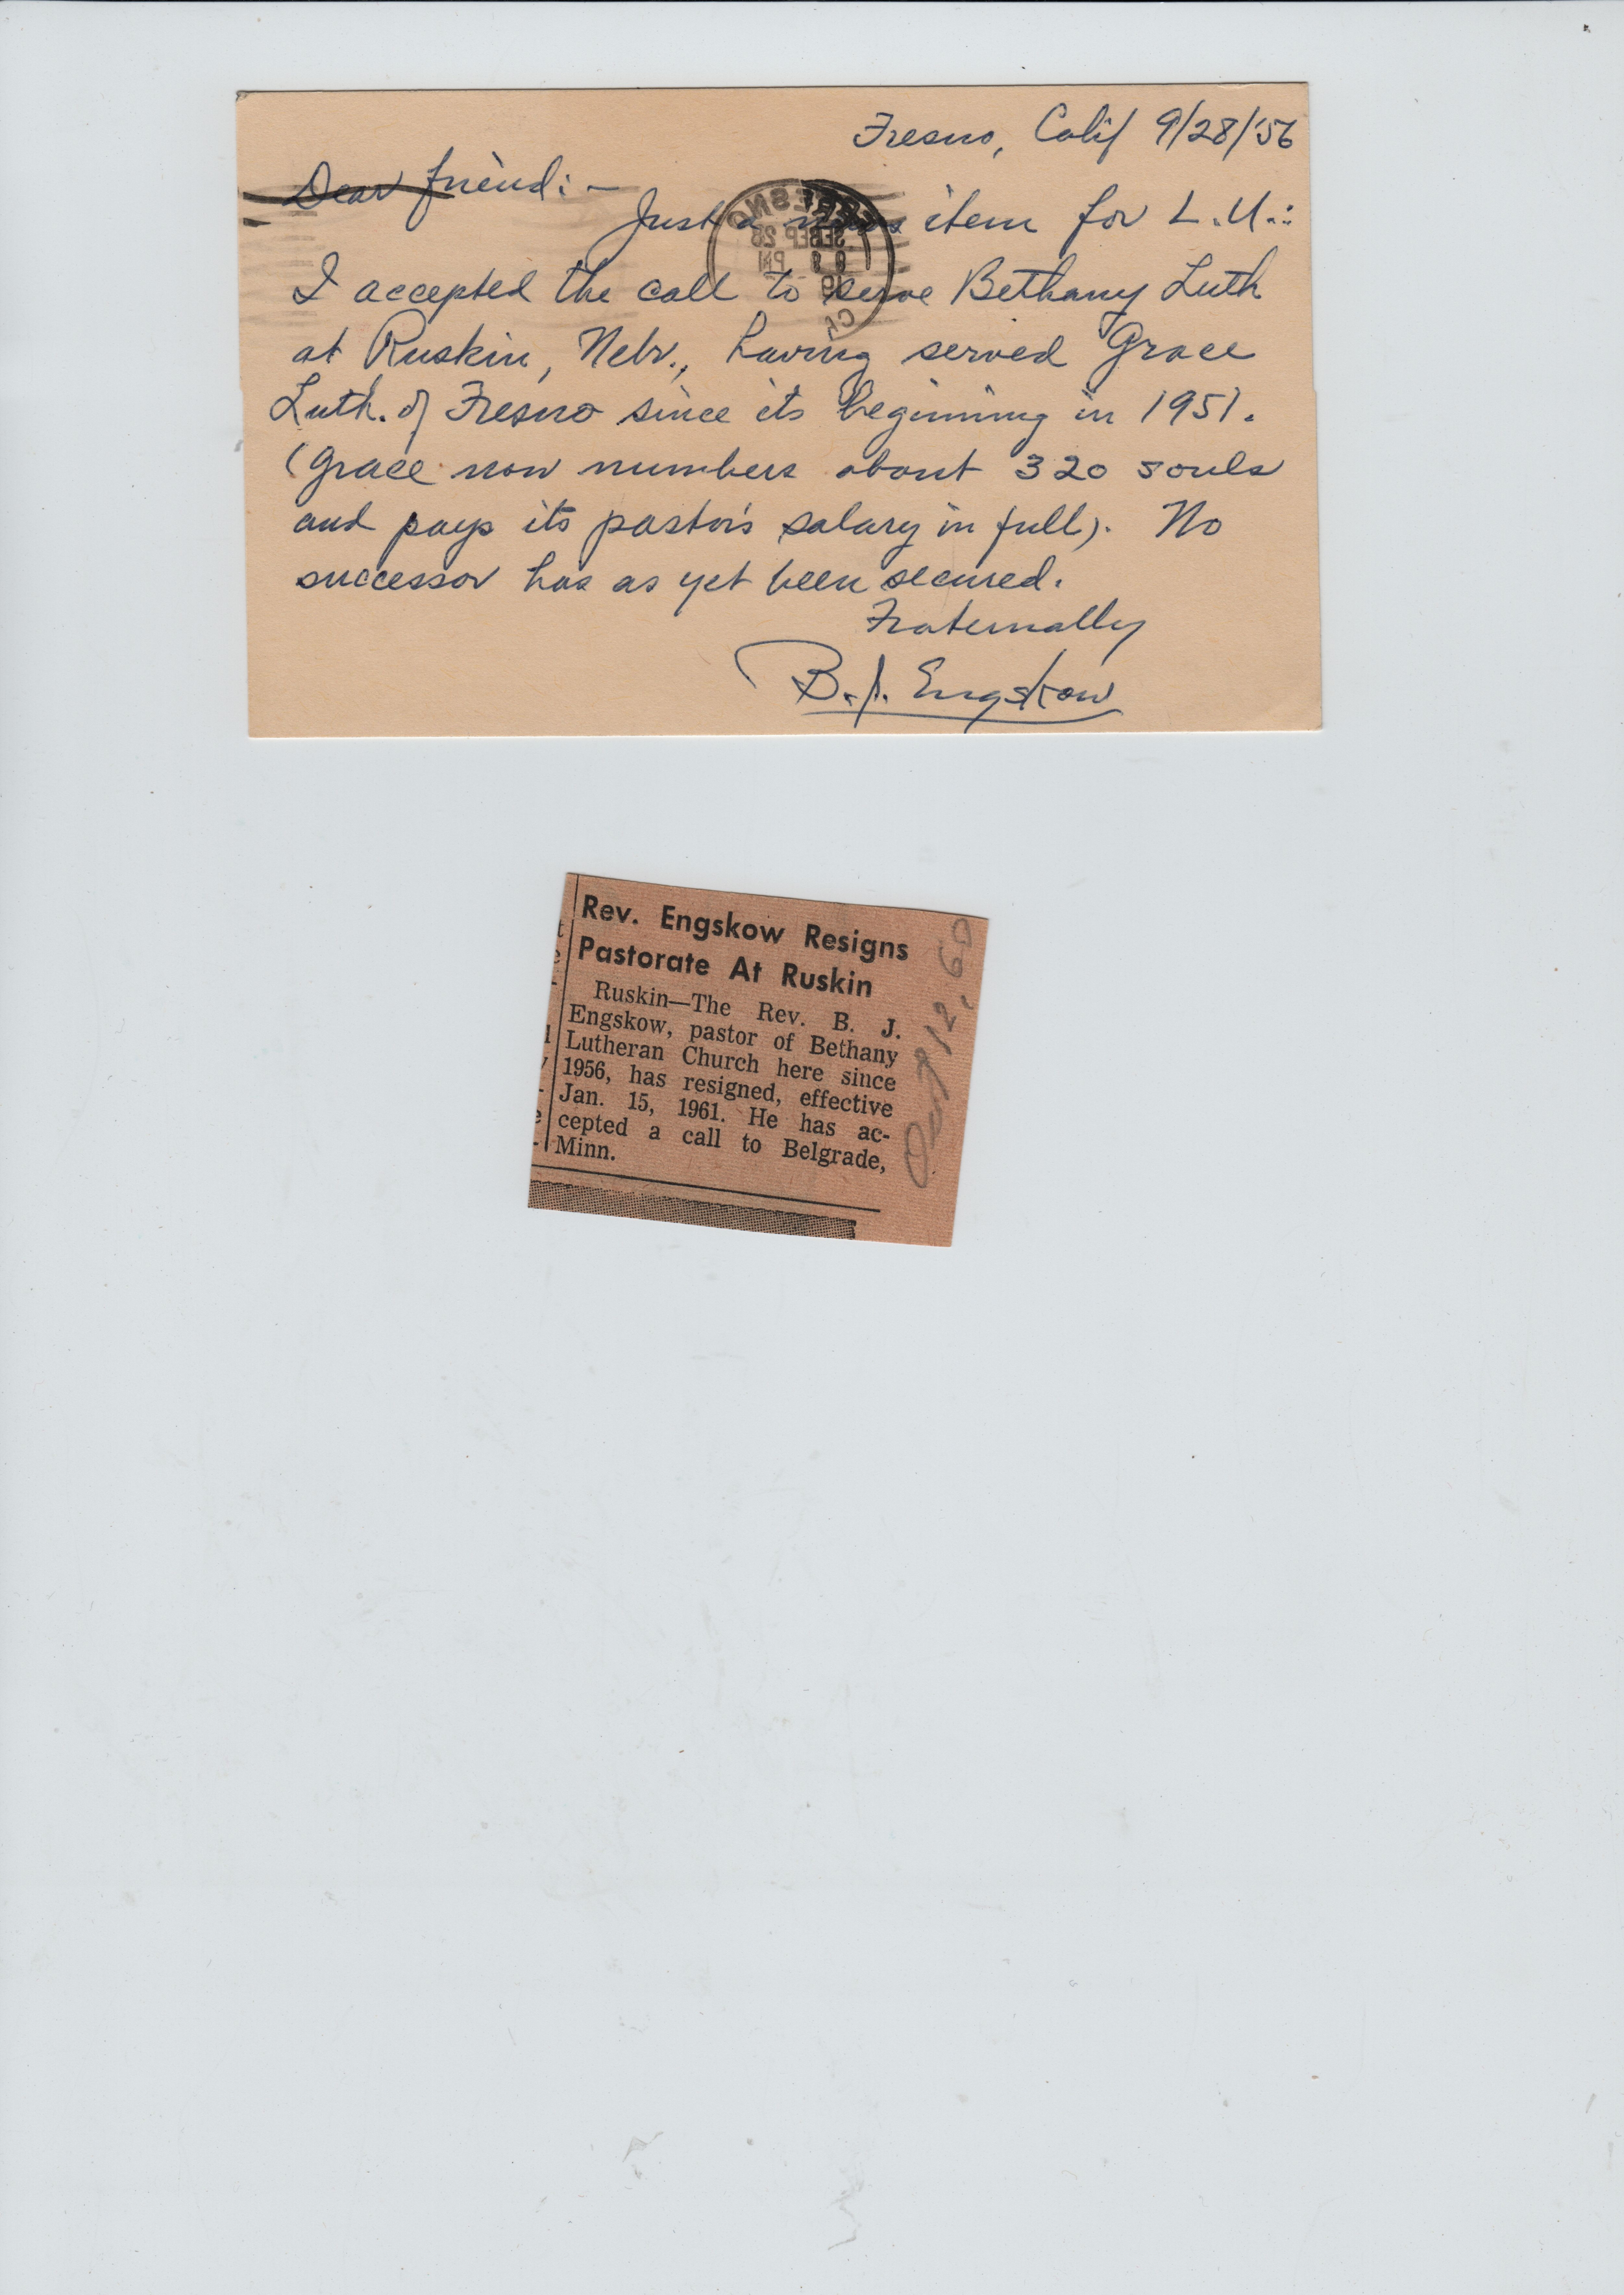 Fresno, Calif 9/28/'56
Dear friend: -
Just a news item for L.U.:
I accepted the call to serve Bethany Luth
at Ruskin, Nebr., having served Grace
Luth. of Fresno since its beginning in 1951.
(Grace now numbers about 320 souls
and pays its pastor's salary in full). No
successor has as yet been secured.
Fraternally
B.J. Engskow
Rev. Engskow Resigns
Pastorate At Ruskin
Ruskin—The Rev. B. J.
Engskow, pastor of Bethany
Lutheran Church here since
1956, has resigned, effective
Jan. 15, 1961. He has ac-
cepted a call to Belgrade,
Minn.
12, 60